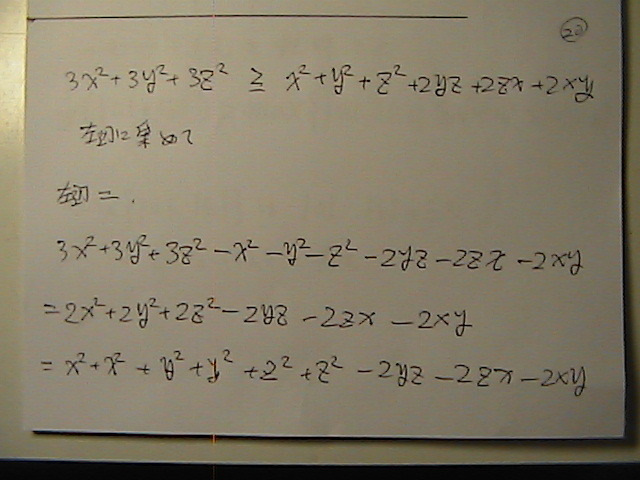 20
3x²+3y²+3z² ≧ x²+y²+z²+2yz+2zx+2xy
左辺に集めて
左辺=.
3x²+3y²+3z²-x²-y²-z²-2yz-2zx-2xy
=2x²+2y²+2z²-2yz-2zx-2xy
=x²+x²+y²+y²+z²+z²-2yz-2zx-2xy